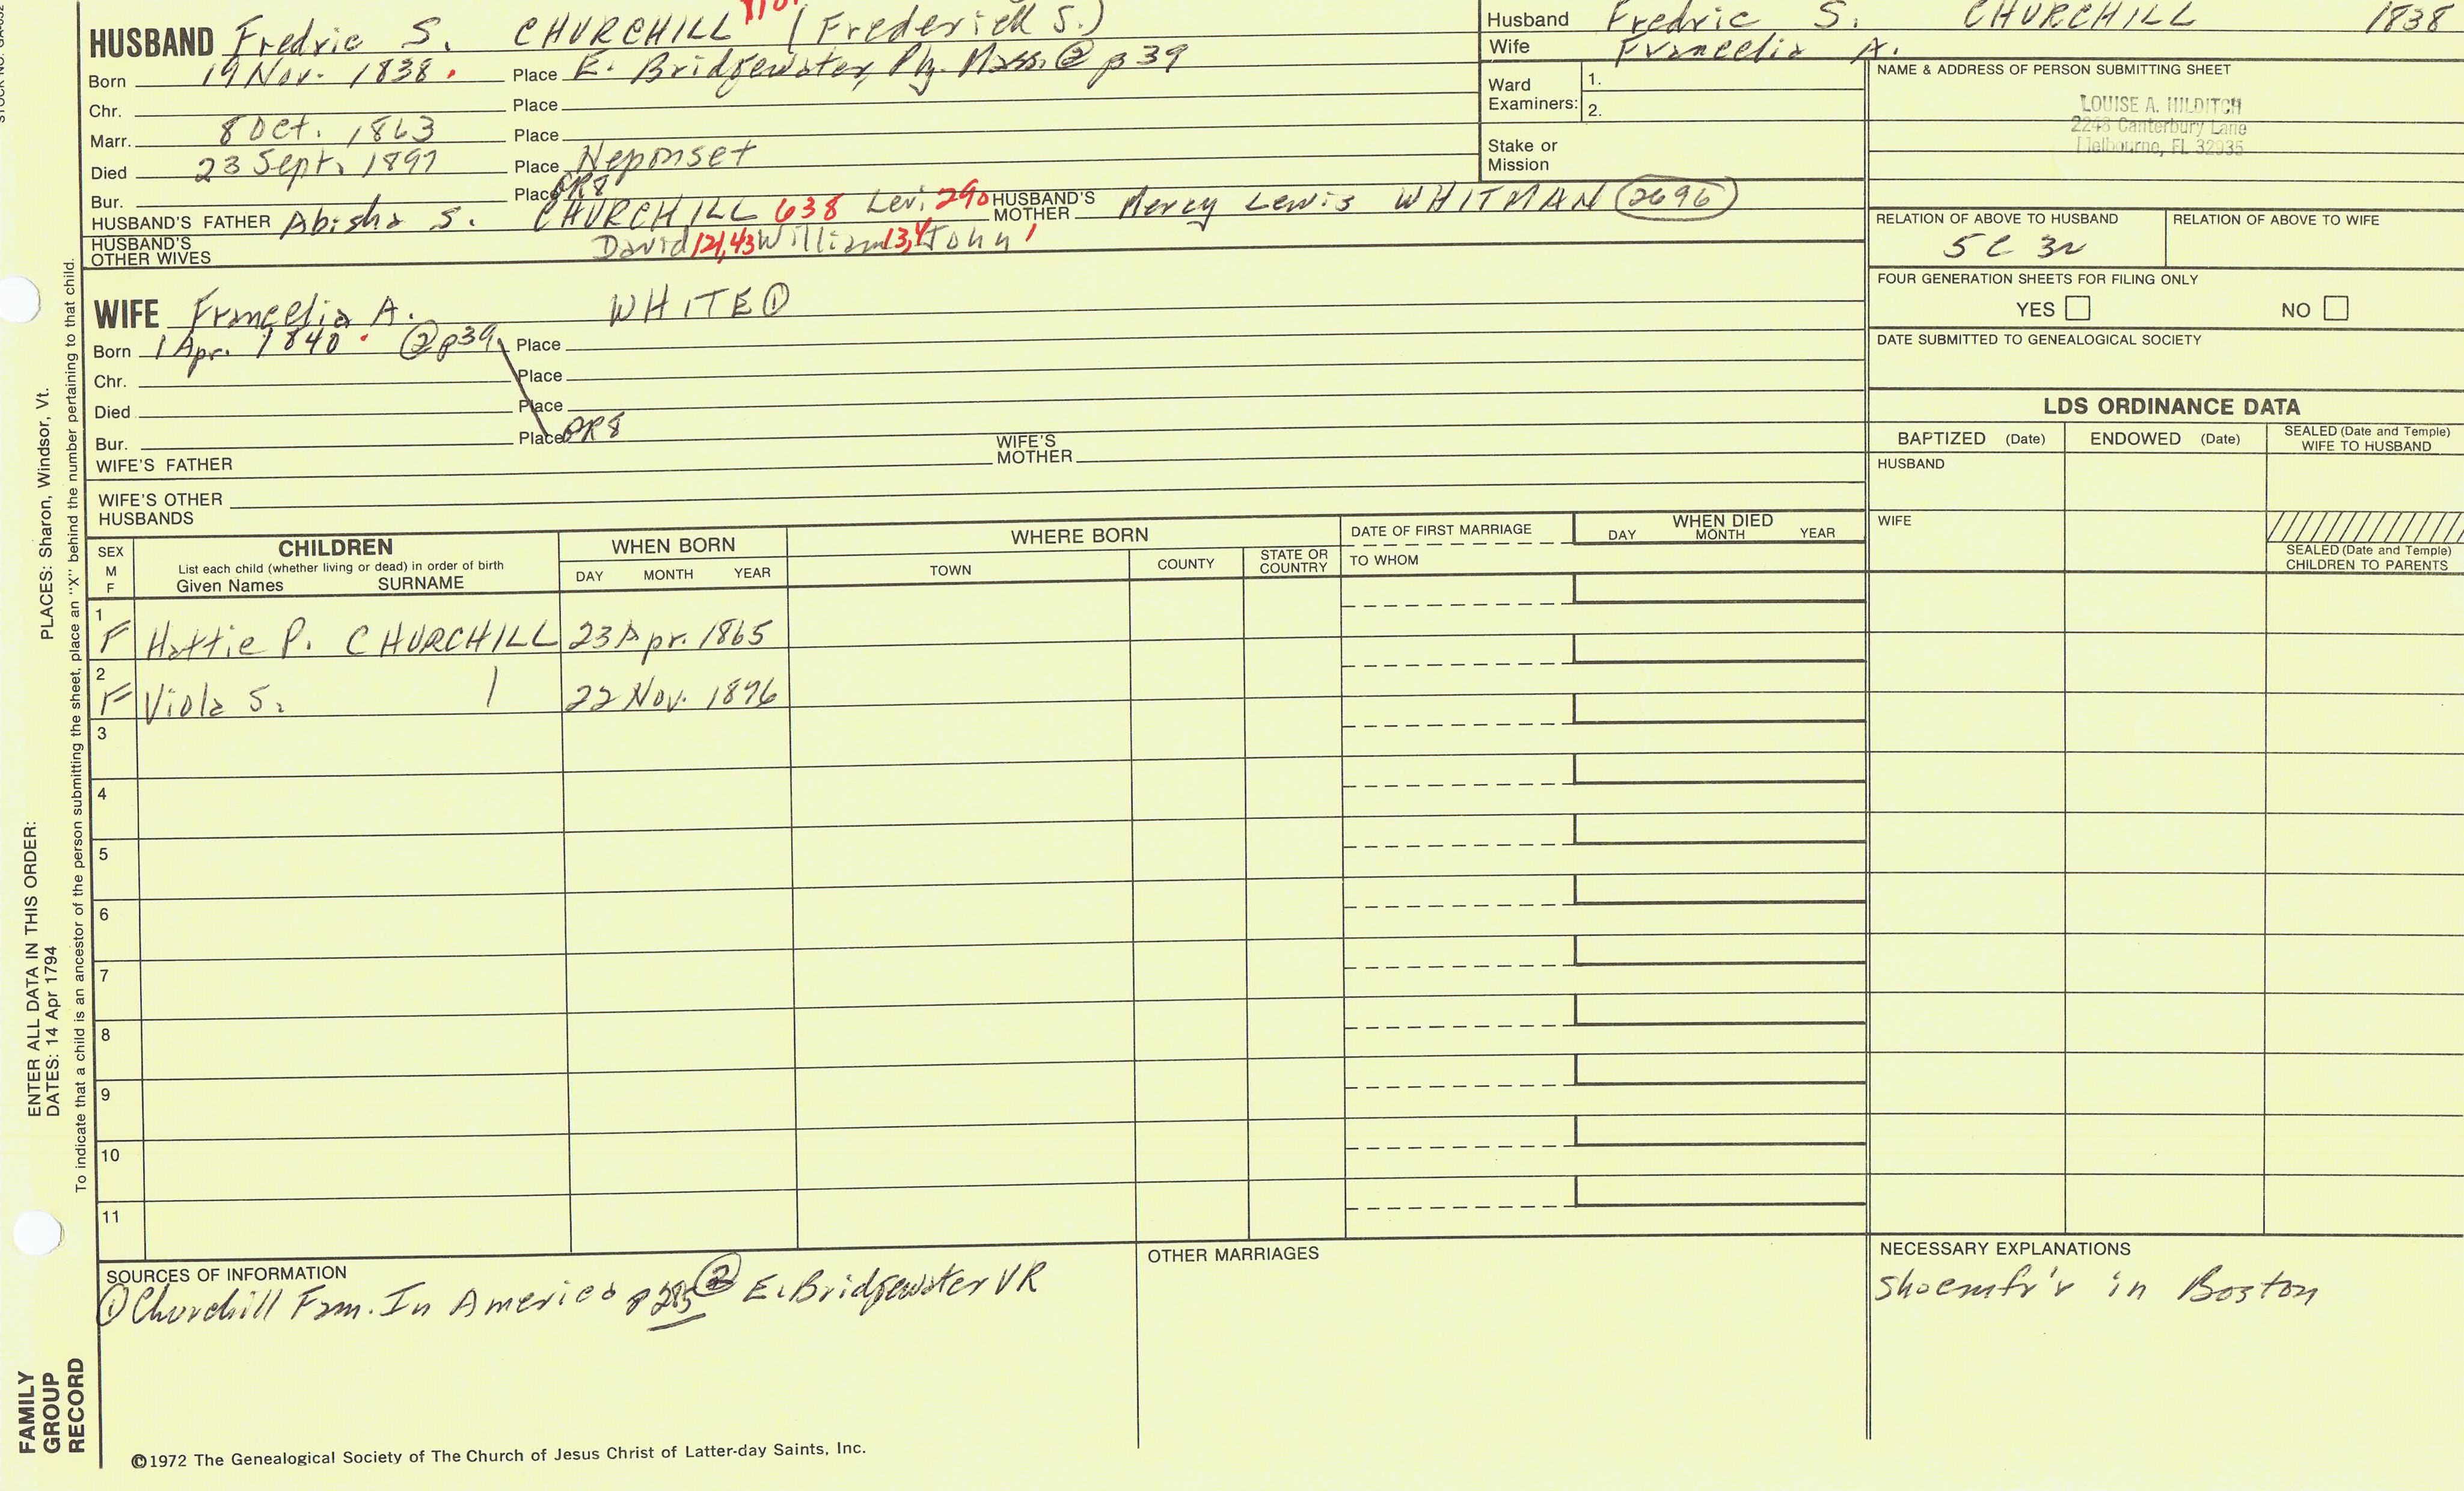 HUSBAND Fredric S. CHURCHILL (Frederick S.)
Born 19 Nov. 1838. Place E. Bridgewater, Ply. Mass. ② p39
Chr. Place
Marr. 8 Oct. 1863 Place
Died 23 Sept. 1897 Place Neponset
Bur. Place OR8
HUSBAND'S FATHER Abisha S. CHURCHILL 638 Levi 290 HUSBAND'S MOTHER Mercy Lewis WHITMAN (2696)
HUSBAND'S OTHER WIVES David 121,43 William 13,4 John 1
Husband Fredric S. CHURCHILL 1838
Wife Francelia A.
Ward Examiners: 1.
2.
Stake or Mission
NAME & ADDRESS OF PERSON SUBMITTING SHEET
LOUISE A. HILDITCH
2248 Canterbury Lane
Melbourne, FL 32935
RELATION OF ABOVE TO HUSBAND RELATION OF ABOVE TO WIFE
5C 3R
FOUR GENERATION SHEETS FOR FILING ONLY
YES NO
DATE SUBMITTED TO GENEALOGICAL SOCIETY
WIFE Francelia A. WHITE ①
Born 1 Apr. 1840. ② p39 Place
Chr. Place
Died Place
Bur. Place OR8
WIFE'S FATHER WIFE'S MOTHER
WIFE'S OTHER HUSBANDS
LDS ORDINANCE DATA
BAPTIZED (Date) ENDOWED (Date) SEALED (Date and Temple) WIFE TO HUSBAND
HUSBAND
WIFE
SEALED (Date and Temple) CHILDREN TO PARENTS
SEX M F
CHILDREN
List each child (whether living or dead) in order of birth
Given Names SURNAME
WHEN BORN
DAY MONTH YEAR
WHERE BORN
TOWN COUNTY STATE OR COUNTRY
DATE OF FIRST MARRIAGE
TO WHOM
WHEN DIED
DAY MONTH YEAR
1 F Hattie P. CHURCHILL 23 Apr. 1865
2 F Viola S. | 22 Nov. 1876
3
4
5
6
7
8
9
10
11
SOURCES OF INFORMATION
① Churchill Fam. In America p285 ② E. Bridgewater VR
OTHER MARRIAGES
NECESSARY EXPLANATIONS
Shoemfr'r in Boston
©1972 The Genealogical Society of The Church of Jesus Christ of Latter-day Saints, Inc.
FAMILY GROUP RECORD
ENTER ALL DATA IN THIS ORDER:
DATES: 14 Apr 1794
PLACES: Sharon, Windsor, Vt.
To indicate that a child is an ancestor of the person submitting the sheet, place an "X" behind the number pertaining to that child.